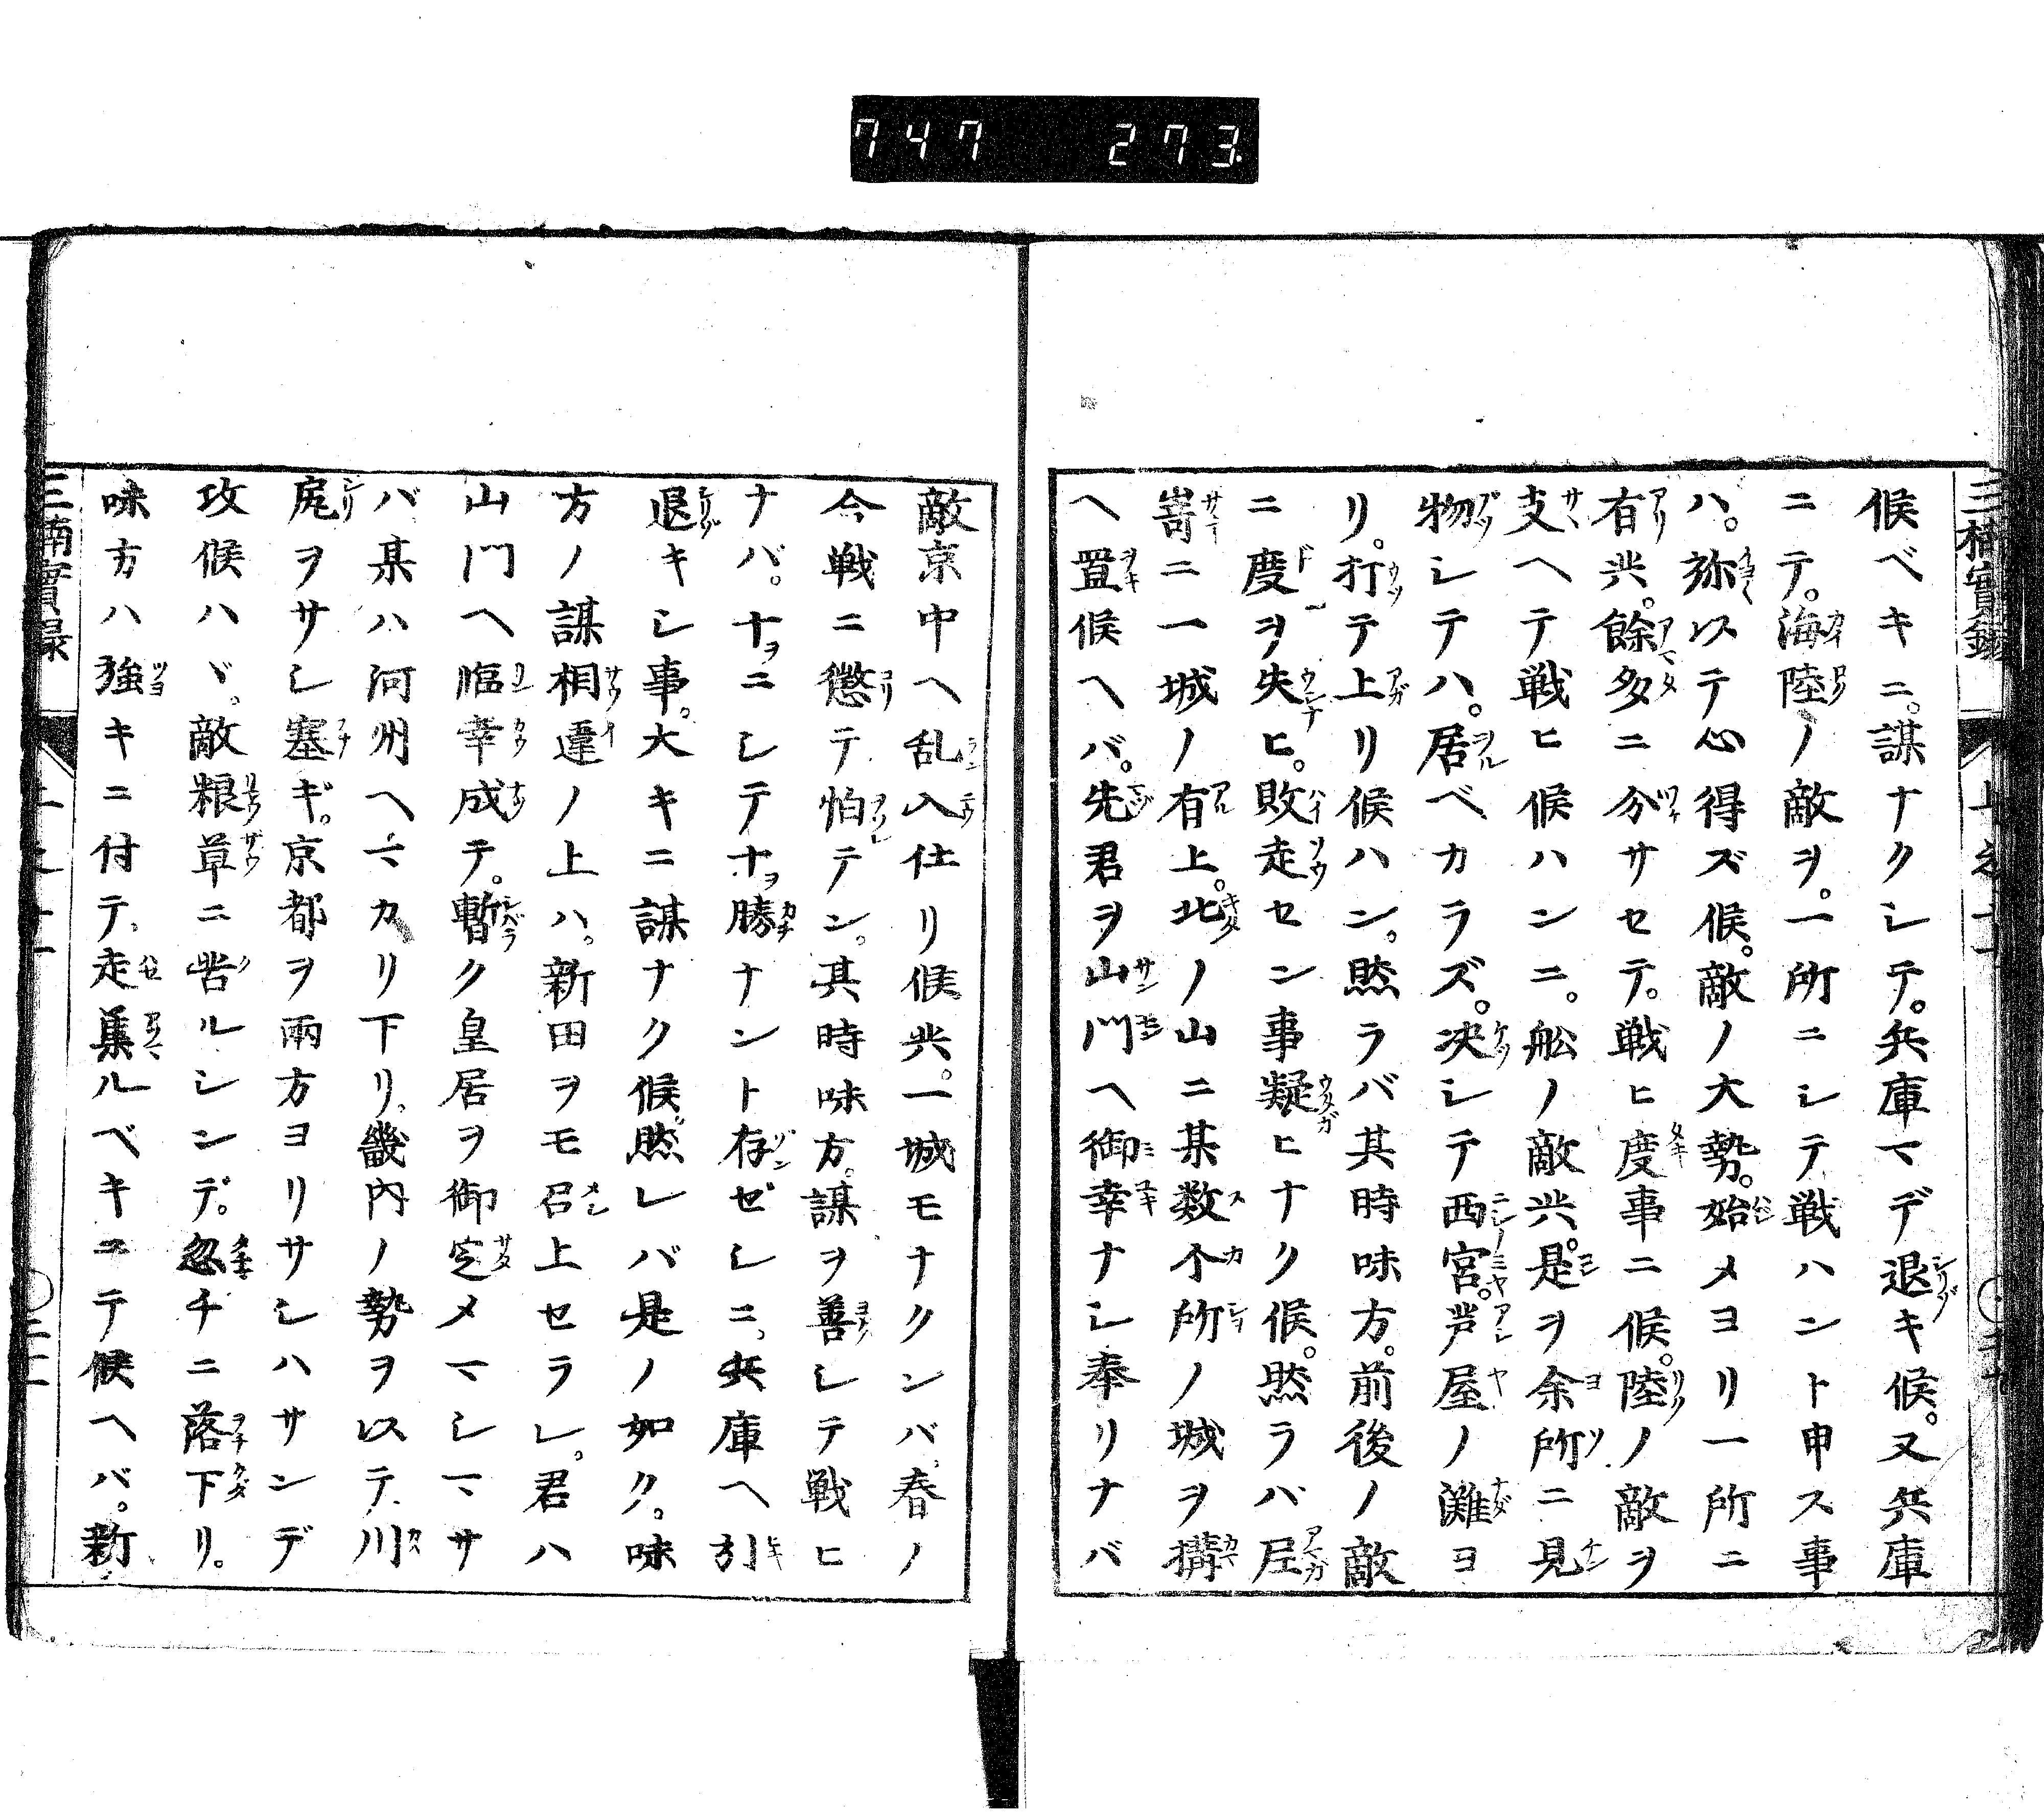 747 273
候ベキニ。謀ナクシテ。兵庫マデ退キ候。又兵庫
ニテ。海陸ノ敵ヲ。一所ニシテ戦ハント申ス事
ハ。弥以テ心得ズ候。敵ノ大勢。始メヨリ一所ニ
有共。餘多ニ分サセテ。戦ヒ度事ニ候。陸ノ敵ヲ
支ヘテ戦ヒ候ハンニ。舩ノ敵共。是ヲ余所ニ見
物シテハ。居ベカラズ。决シテ西宮。芦屋ノ灘ヨ
リ。打テ上リ候ハン。然ラバ其時味方。前後ノ敵
ニ度ヲ失ヒ。敗走セン事疑ヒナク候。然ラバ尼
嵜ニ一城ノ有上。北ノ山ニ某数个所ノ城ヲ搆
ヘ置候ヘバ。先君ヲ山門ヘ御幸ナシ奉リナバ
敵京中ヘ乱入仕リ候共。一城モナクンバ、春ノ
今戦ニ懲テ怕テン。其時味方。謀ヲ善シテ戦ヒ
ナバ。十ヲニシテ十ヲ勝ナント存ゼシニ、兵庫ヘ引
退キシ事。大キニ謀ナク候。然レバ是ノ如ク。味
方ノ謀相違ノ上ハ。新田ヲモ召上セラレ。君ハ
山門ヘ臨幸成テ。暫ク皇居ヲ御定メマシマサ
バ某ハ河州ヘマカリ下リ。畿内ノ勢ヲ以テ、川
尻ヲサシ塞ギ。京都ヲ兩方ヨリサシハサンデ
攻候ハヾ。敵粮草ニ苦ルシンデ。忽チニ落下リ。
味方ハ強キニ付テ、走集ルベキニテ候ヘバ。新